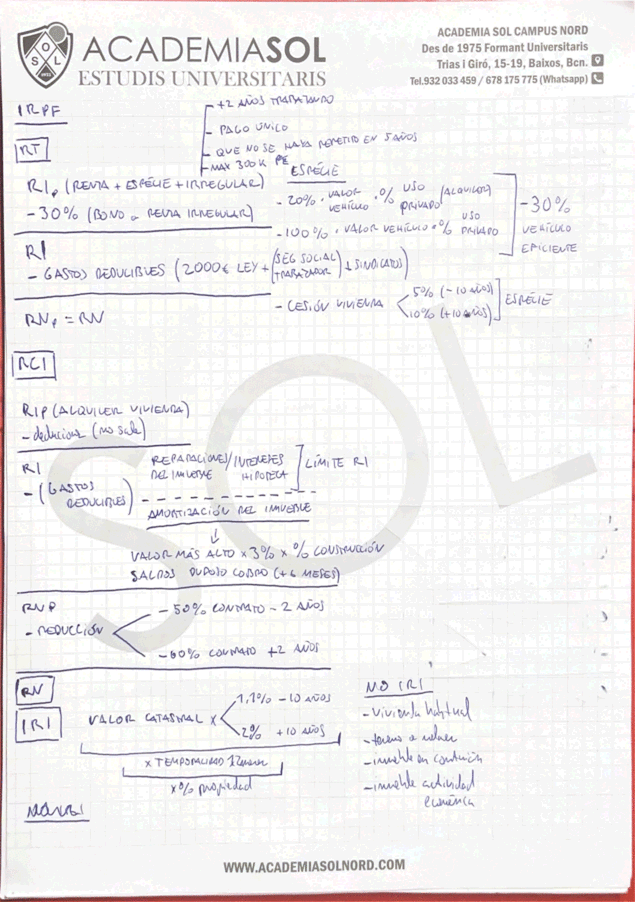 ACADEMIASOL
ESTUDIS UNIVERSITARIS
ACADEMIA SOL CAMPUS NORD
Des de 1975 Formant Universitaris
Trias i Giró, 15-19, Baixos, Bcn.
Tel.932 033 459 / 678 175 775 (Whatsapp)
IRPF
- +2 AÑOS TRABAJANDO
- PAGO ÚNICO
- QUE NO SE HAYA REPETIDO EN 5 AÑOS
- MAX 300K
RT
RIP (RENTA + ESPÉCIE + IRREGULAR)
- 30% (BONO o RENTA IRREGULAR)
ESPÉCIE
- 20% · VALOR VEHÍCULO · % USO PRIVADO (ALQUILER)
- 100% · VALOR VEHÍCULO · % USO PRIVADO
- 30% VEHÍCULO EFICIENTE
RI
- GASTOS DEDUCIBLES (2000€ LEY + (SEG SOCIAL TRABAJADOR) + SINDICATOS)
RNP = RN
- CESIÓN VIVIENDA
5% (-10 AÑOS)
10% (+10 AÑOS)
ESPÉCIE
RCI
RIP (ALQUILER VIVIENDA)
- deducciones (no sale)
RI
- (GASTOS DEDUCIBLES)
REPARACIONES / INTERESES
DEL INMUEBLE HIPOTECA
LÍMITE RI
AMORTIZACIÓN DEL INMUEBLE
↓
VALOR MÁS ALTO x 3% x % CONSTRUCCIÓN
SALDOS DUDOSO COBRO (+6 MESES)
RNP
- REDUCCIÓN
- 50% CONTRATO - 2 AÑOS
- 60% CONTRATO +2 AÑOS
RN
IRI
VALOR CATASTRAL x
1,1% - 10 AÑOS
2% +10 AÑOS
x TEMPORALIDAD
x % propiedad
NO IRI
- vivienda habitual
- inmueble en construcción
- inmueble actividad
económica
SOL
WWW.ACADEMIASOLNORD.COM